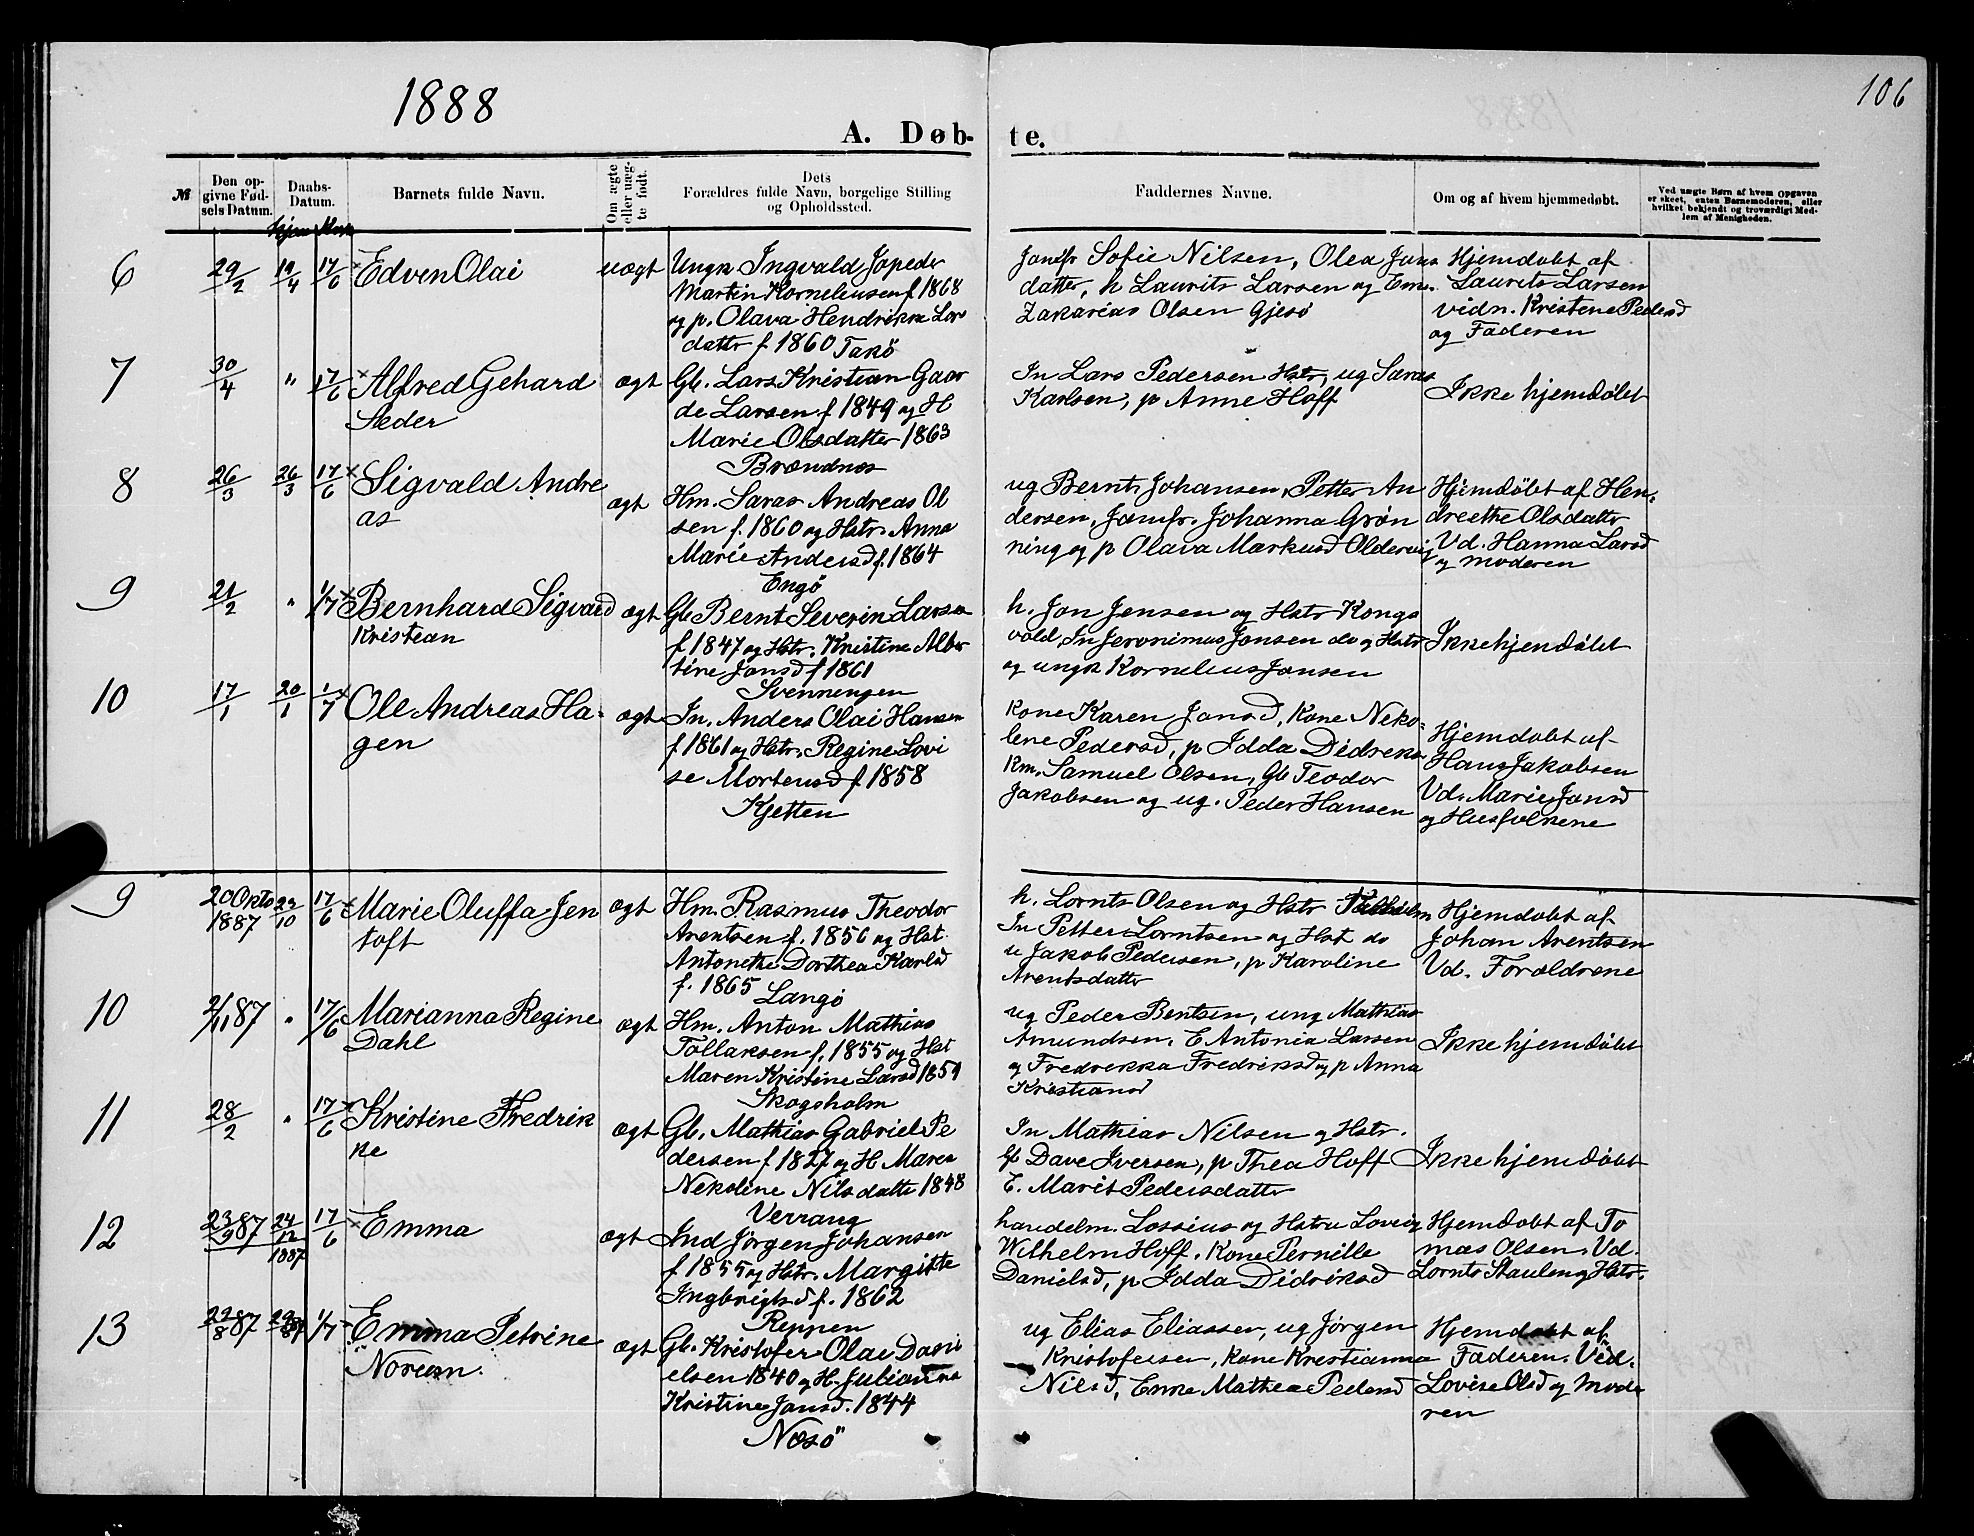 1888
106
A. Døbte.
№
Den opgivne Fødsels Datum.
Daabs-Datum.
hjem Kirke
Barnets fulde Navn.
Om ægte eller uægte født.
Dets Forældres fulde Navn, borgelige Stilling og Opholdssted.
Faddernes Navne.
Om og af hvem hjemmedøbt.
Ved uægte Børn af hvem Opgaven er skeet, enten Barnemoderen, eller hvilket bekjendt og troværdigt Medlem af Menigheden.
6 29/2 19/4 17/6 × Edven Olai
uægt
Ungk Ingvald Jopeder
Martin Korneliusen f 1868
og p. Olava Hendrikke Lors
datter f 1860 Taxö
Jomfr Sofie Nilsen, Olea Jans
datter, h Laurits Larsen og Em.
Zakarias Olsen Gjesö
Hjemdøbt af
Laurits Larsen
vidn. Kristene Pedersd
og Faderen
7 30/4 " 17/6 × Alfred Gehard
Sleder
ægt
Gb. Lars Kristian Gaar
de Larsen f 1849 og H
Marie Olsdatter 1863
Brændnes
In Lars Pedersen Hstr, ug Saras
Karlsen, p Anne Hoff
Ikke hjemdøbt
8 26/3 26/3 17/6 × Sigvald Andre
as
ægt
Hm. Saras Andreas Ol
sen f. 1860 og Hstr. Anna
Marie Andersd f. 1864
Engö
ug Bernt Johansen, Petter An
dersen, Jomfr. Johanna Grøn
ning og p Olava Markusd Oldervig
Hjemdøbt af Hen
dreethe Olsdatter
Vd. Hanna Larsd
og moderen
9 21/2 " 1/7 × Bernhard Sigvard
Kristian
ægt
Gb Bernt Severin Larsen
f 1847 og Hstr. Kristine Alber
tine Jonsd f 1861
Svenningen
h. Jon Jensen og Hstr Kongs
vold, In Jeronimus Jonsen do og Hstr
og ungk Kornelius Jonsen
Ikke hjemdøbt
10 17/1 20/1 1/7 × Ole Andreas Ha-
gen
ægt
In. Anders Olai Hansen
f 1861 og Hstr. Regine Lovi
se Mortensd f 1858
Kjetten
Kone Karen Jonsd, Kone Neko-
lene Pedersd, p Idda Didreks
Km. Samuel Olsen, Gb Teodor
Jakobsen og ug. Peder Hansen
Hjemdøbt af
Hans Jakobsen
Vd. Marie Jonsd
og Husfolkene
9 20 Okto 1887 23/10 17/6 × Marie Oluffa Jen
toft
ægt
Hm. Rasmus Theodor
Arentsen f. 1856 og Hst.
Antonette Dorthea Karlsd
f. 1865 Langö
h. Lornts Olsen og Hstr
In Petter Lorntsen og Hst do
u Jakob Pedersen, p Karoline
Arentsdatter
Hjemdøbt af
Johan Arentsen
Vd. Forældrene
10 2/11 87 " 17/6 Marianna Regine
Dahl
ægt
Hm. Anton Mathias
Tollaksen f. 1855 og Hst
Maren Kristine Larsd 1859
Skogsholm
ug Peder Bentsen, ung Mathias
Amundsen. E Antonia Larsen
og Fredrekka Fredriksd og p Anna
Kristiansd
Ikke hjemdøbt
11 28/2 " 17/6 × Kristine Fredrik
ke
ægt
Gb. Mathias Gabriel Pe
dersen f 1827 og H Maren
Nekoline Nilsdatter 1848
Verrang
In Mathias Nilsen og Hstr.
Gb Dave Iversen, p Thea Hoff
E. Marit Pedersdatter
Ikke hjemdøbt
12 23/9 87 24/12 1887 17/6 × Emma
ægt
Ind Jørgen Johansen
f 1855 og Hstr. Margitte
Ingbrigtsd f. 1862
Reppen
handelm. Lossius og Hstru Lovig
Wilhelm Hoff. Kone Pernille
Danielsd, p Idda Didriksd
Hjemdøbt af To
mas Olsen. Vd.
Lornts Staulen og Hstr.
13 29/8 87 1/7 Emma Petrine
Noreen.
ægt
Gb. Kristofer Olai Dani
elsen 1840 og H. Julianna
Kristine Jonsd. 1844
Næsö
ug Elias Eliassen, ug Jörgen
Kristofersen, Kone Krestianna
Nilsd, Enke Mathea Pedersd
Hjemdøbt af
Faderen. Vid.
Lovise Olsd og Mode
ren